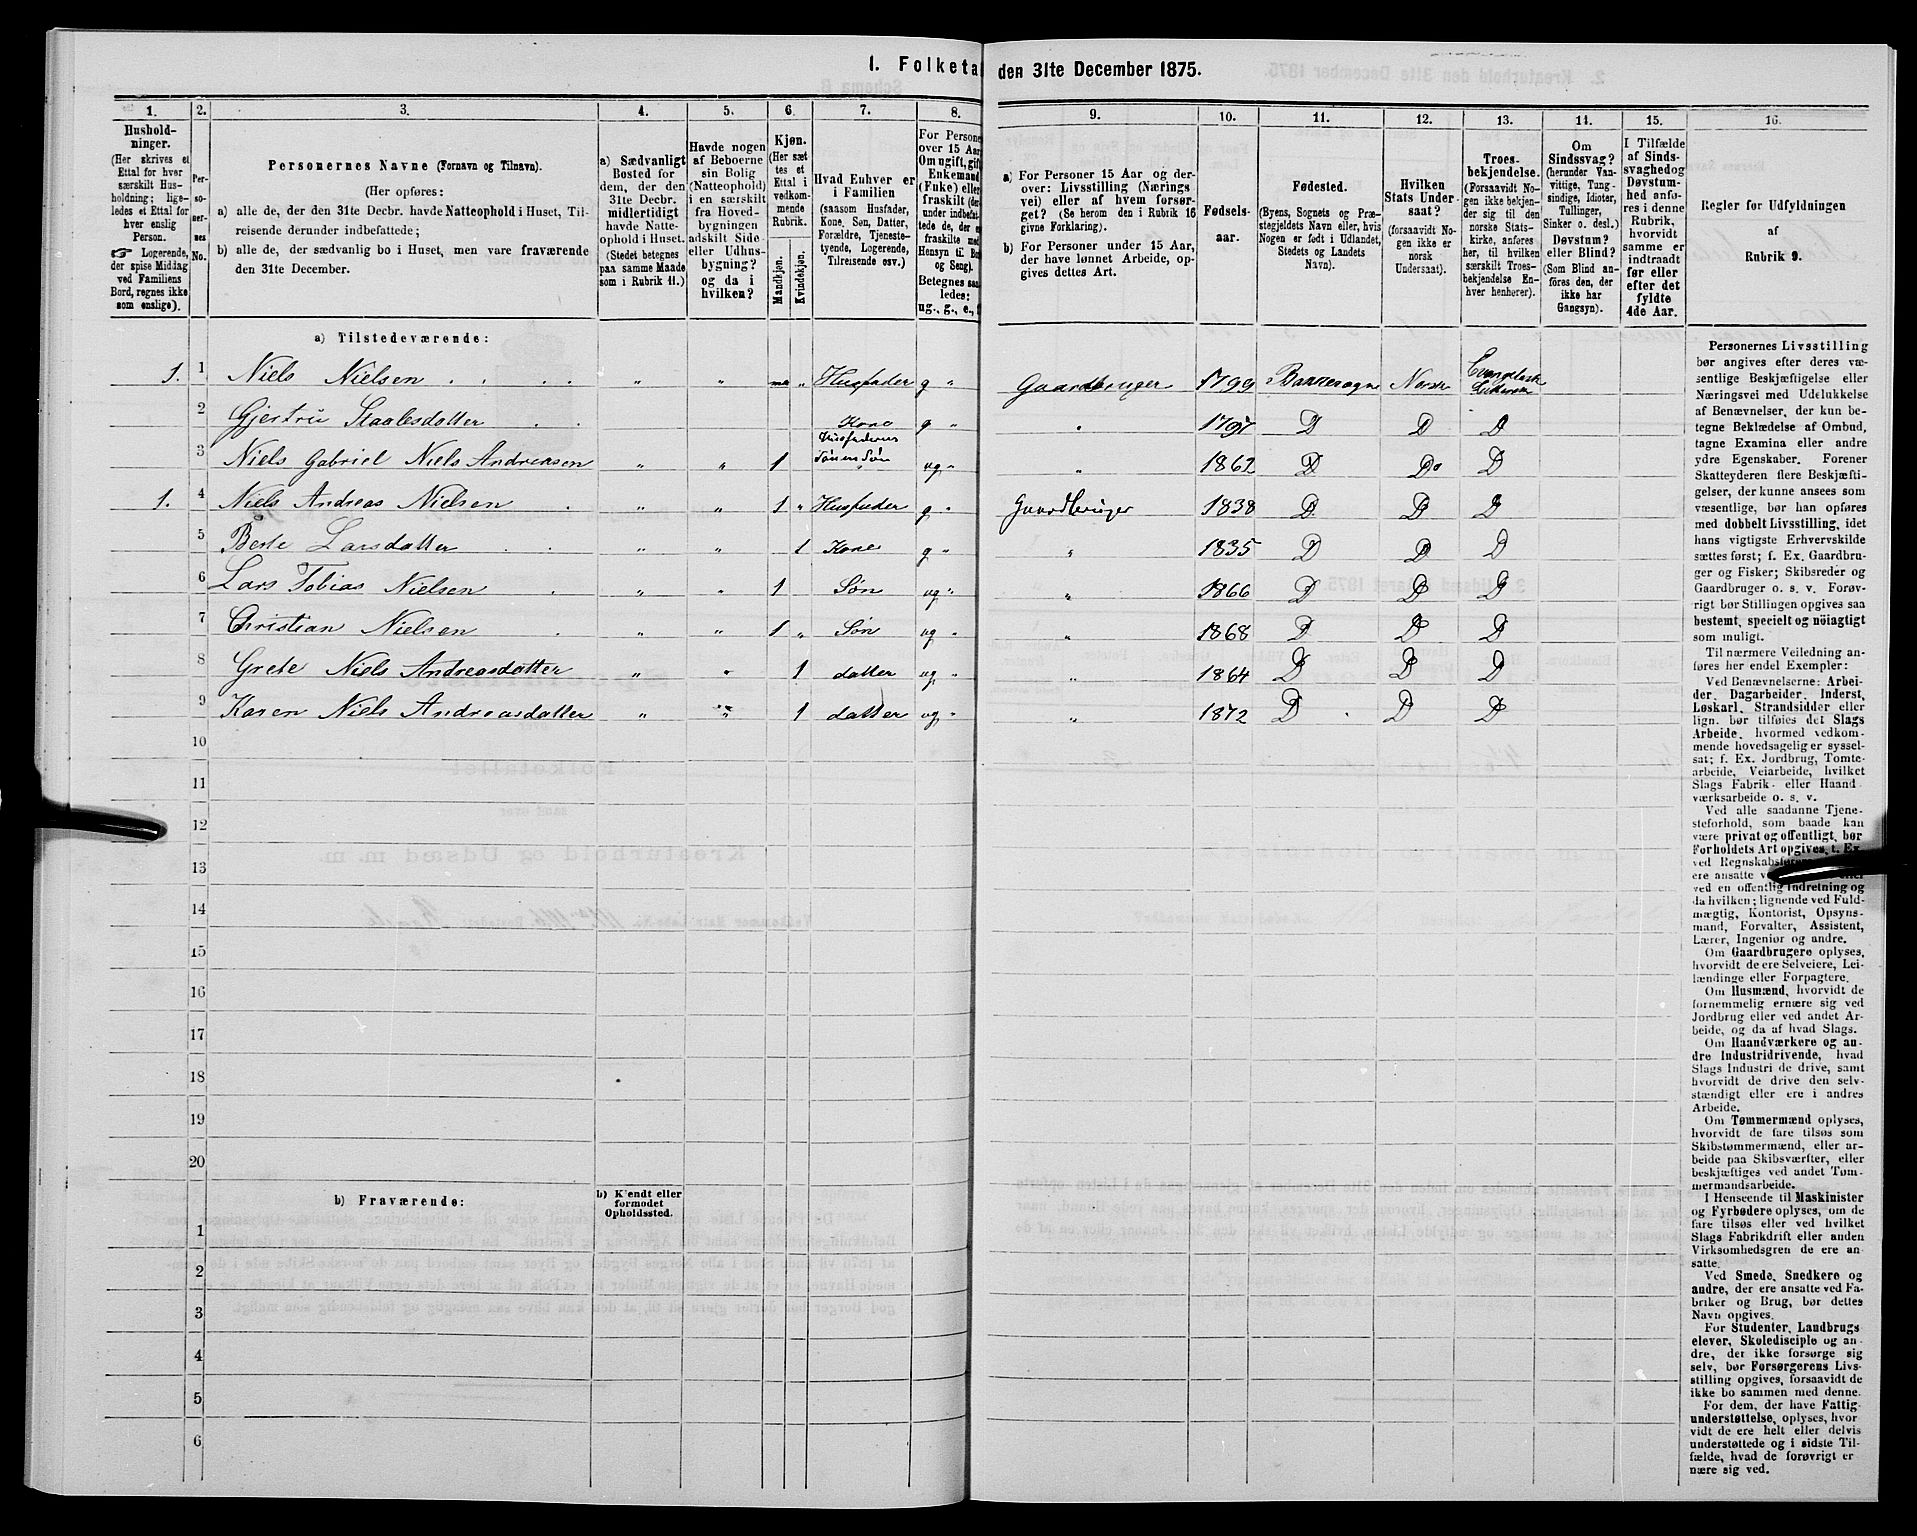 1. Folketa den 31te December 1875.
1. 2. 3. 4. 5. 6. 7. 8. 9. 10. 11. 12. 13. 14. 15. 16.
Hushold-
ninger.
(Her skrives et
Ettal for hver
særskilt Hus-
holdning; lige-
ledes et Ettal for
hver enslig
Person.
☞ Logerende,
der spise Middag
ved Familiens
Bord, regnes ikke
som enslige).
Per-
so-
ner-
nes
No.
Personernes Navne (Fornavn og Tilnavn).
(Her opføres:
a) alle de, der den 31te Decbr. havde Natteophold i Huset, Til-
reisende derunder indbefattede;
b) alle de, der sædvanlig bo i Huset, men vare fraværende
den 31te December.
a) Sædvanligt
Bosted for
dem, der den
31te Decbr.
midlertidigt
havde Natte-
ophold i Huset.
(Stedet betegnes
paa samme Maade
som i Rubrik 11.)
Havde nogen
af Beboerne
sin Bolig
(Natteophold)
i en særskilt
fra Hoved-
bygningen
adskilt Side-
eller Udhus-
bygning?
og da i
hvilken?
Kjøn.
(Her sæt-
tes et
Ettal i
vedkom-
mende
Rubrik.
Mandkjøn.
Kvindekjøn.
Hvad Enhver er
i Familien
(saasom Husfader,
Kone, Søn, Datter,
Forældre, Tjeneste-
tyende, Logerende,
Tilreisende osv.)
For Persone
over 15 Aar
Om ugift, gift
Enkemand
(Fuke) eller
fraskilt (der
under indbefat-
tede de, der e
fraskilte med
Hensyn til Bo
og Seng).
Betegnes saa
ledes:
ug., g., e., f
a) For Personer 15 Aar og der-
over: Livsstilling (Nærings
vei) eller af hvem forsør-
get? (Se herom den i Rubrik 16
givne Forklaring).
b) For Personer under 15 Aar,
der have lønnet Arbeide, op-
gives dettes Art.
Fødsels-
aar.
Fødested.
(Byens, Sognets og Præ-
stegjeldets Navn eller, hvis
Nogen er født i Udlandet,
Stedets og Landets
Navn).
Hvilken
Stats Under-
saat?
(forsaavidt No-
gen ikke er
norsk
Undersaat).
Troes-
bekjendelse.
(Forsaavidt No-
gen ikke bekjen-
der sig til den
norske Stats-
kirke, anføres
her, til hvilken
særskilt Troes-
bekjendelse En-
hver henhører).
Om
Sindssvag?
(herunder Van-
vittige, Tung-
sindige, Idioter,
Tullinger,
Sinker o. desl.)
Døvstum?
eller Blind?
(Som Blind an-
føres den, der
ikke har
Gangsyn).
I Tilfælde
af Sinds-
svaghed og
Døvstum-
hed anfø-
res i denne
Rubrik,
hvorvidt
samme er
indtraadt
før eller
efter det
fyldte
4de Aar.
Regler for Udfyldningen
af
Rubrik 9.
a) Tilstedeværende:
1. 1 Niels Nielsen Husfader g Gaardbruger 1799 Norsk
2 Gjertru Staalesdatter Kone g 1797 D D D
3 Niels Gabriel Niels Andreasen 1 Husfaderens Sønnesøn ug 1862 D Do D
1. 4 Niels Andreas Nielsen 1 Husfader g Gaardbruger 1838 D D D
5 Berte Larsdatter 1 Kone g 1835 D D D
6 Lars Tobias Nielsen 1 Søn ug 1866 D D D
7 Christian Nielsen 1 Søn ug 1868 D D D
8 Grete Niels Andreasdatter 1 datter ug 1864 D D D
9 Karen Niels Andreasdatter 1 datter ug 1872 D D D
10
11
12
13
14
15
16
17
18
19
20
b) Fraværende: b) Kjendt eller
formodet
Opholdssted.
1
2
3
4
5
6
Personernes Livsstilling
bør angives efter deres væ-
sentlige Beskjæftigelse eller
Næringsvei med Udelukkelse
af Benævnelser, der kun be-
tegne Beklædelse af Ombud,
tagne Examina eller andre
ydre Egenskaber. Forener
Skatteyderen flere Beskjæfti-
gelser, der kunne ansees som
væsentlige, bør han opføres
med dobbelt Livsstilling, idet
hans vigtigste Erhvervskilde
sættes først; f. Ex. Gaardbru-
ger og Fisker; Skibsreder og
Gaardbruger o. s. v. Forøv-
rigt bør Stillingen opgives saa
bestemt, specielt og nöiagtigt
som muligt.
Til nærmere Veiledning an-
føres her endel Exempler:
Ved Benævnelserne: Arbei-
der, Dagarbeider, Inderst,
Løskarl, Strandsidder eller
lign. bør tilføies det Slags
Arbeide, hvormed vedkom-
mende hovedsagelig er syssel-
sat; f. Ex. Jordbrug, Tomte-
arbeide, Veiarbeide, hvilket
Slags Fabrik- eller Haand
værksarbeide o. s. v.
Ved alle saadanne Tjene-
steforhold, som baade kan
være privat og offentligt, bør
Forholdets Art opgives, f. Ex
ved Regnskabsførere
ere ansatte
ved en offentlig Indretning og
da hvilken; lignende ved Fuld-
mægtig, Kontorist, Opsyns-
mand, Forvalter, Assistent,
Lærer, Ingeniør og andre.
Om Gaardbrugere oplyses,
hvorvidt de ere Selveiere, Lei-
lændinge eller Forpagtere.
Om Husmænd, hvorvidt de
fornemmelig ernære sig ved
Jordbrug eller ved andet Ar-
beide, og da af hvad Slags.
Om Haandværkere og an-
dre Industridrivende, hvad
Slags Industri de drive, samt
hvorvidt de drive den selv-
stændigt eller ere i andres
Arbeide.
Om Tømmermænd oplyses,
hvorvidt de fare tilsøs som
Skibstømmermænd, eller ar-
beide paa Skibsværfter, eller
beskjæftiges ved andet Tøm-
mermandsarbeide.
I Henseende til Maskinister
og Fyrbødere oplyses, om de
fare tilsøs eller ved hvilket
Slags Fabrikdrift eller anden
Virksomhedsgren de ere an-
satte.
Ved Smede, Snedkere og
andre, der ere ansatte ved Fa-
briker og Brug, bør dettes
Navn opgives.
For Studenter, Landbrugs
elever, Skoledisciple og an-
dre, der ikke forsørge sig
selv, bør Forsørgerens Livs-
stilling opgives, forsaavidt de
ikke bo sammen med denne.
For dem, der have Fattig
understøttelse, oplyses, hvor
vidt de ere helt eller delvis
understøttede og i sidste Til-
fælde, hvad de forøvrigt er
nære sig ved.